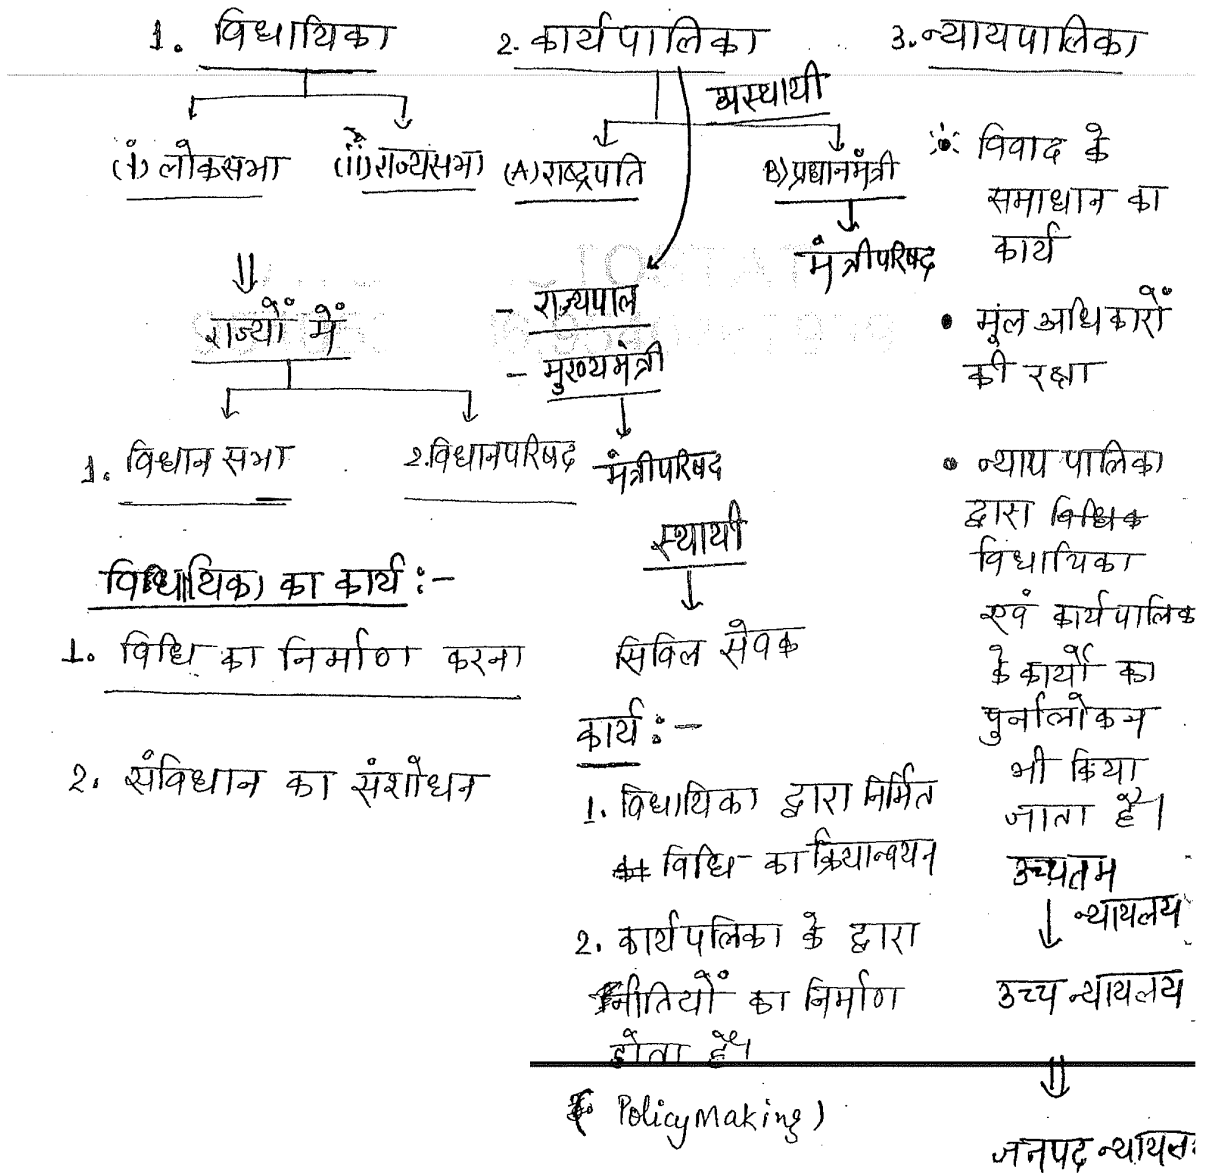 1. विधायिका
(i) लोकसभा
(ii) राज्यसभा
राज्यों में
1. विधान सभा
2. विधानपरिषद
विधायिका का कार्य :-
1. विधि का निर्माण करना
2. संविधान का संशोधन
2. कार्यपालिका
अस्थायी
(A) राष्ट्रपति
B) प्रधानमंत्री
मंत्रीपरिषद
- राज्यपाल
- मुख्यमंत्री
मंत्रीपरिषद
स्थायी
सिविल सेवक
कार्य :-
1. विधायिका द्वारा निर्मित
विधि का क्रियान्वयन
2. कार्यपलिका के द्वारा
नीतियों का निर्माण
होता है।
( Policy Making )
3. न्यायपालिका
विवाद के
समाधान का
कार्य
• मूल अधिकारों
की रक्षा
• न्याय पालिका
द्वारा
विधायिका
एवं कार्यपालिक
के कार्यों का
पुर्नालोकन
भी किया
जाता है।
उच्चतम
न्यायलय
उच्च न्यायलय
जनपद